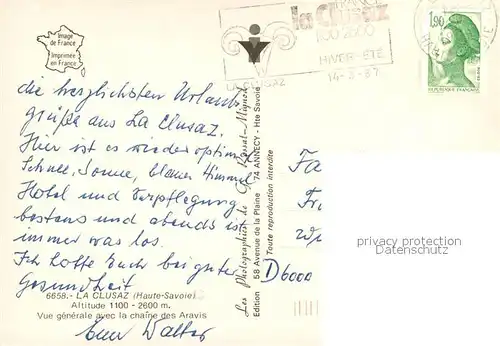 Image
de France
Imprimée
en France
FRANCE
la Clusaz
1100 2600
HIVER-ÉTÉ
LA CLUSAZ
14-3-87
1,90
RÉPUBLIQUE FRANÇAISE
die herzlichsten Urlaubs
grüße aus La Clusaz.
Hier ist es wieder optimal
Schnee, Sonne, blauer Himmel
Hotel und Verpflegung
bestens und abends ist
immer was los.
Ich hoffe Euch bei guter
Gesundheit
6658.- LA CLUSAZ (Haute-Savoie)
Altitude 1100 - 2600 m.
Vue générale avec la chaîne des Aravis
Euer Walter
Les Photographies de Cl. Rossat-Mignot
Edition 58 Avenue de la Plaine 74 ANNECY - Hte Savoie
Toute reproduction interdite
Fa
Fr
D6000
privacy protection
Datenschutz